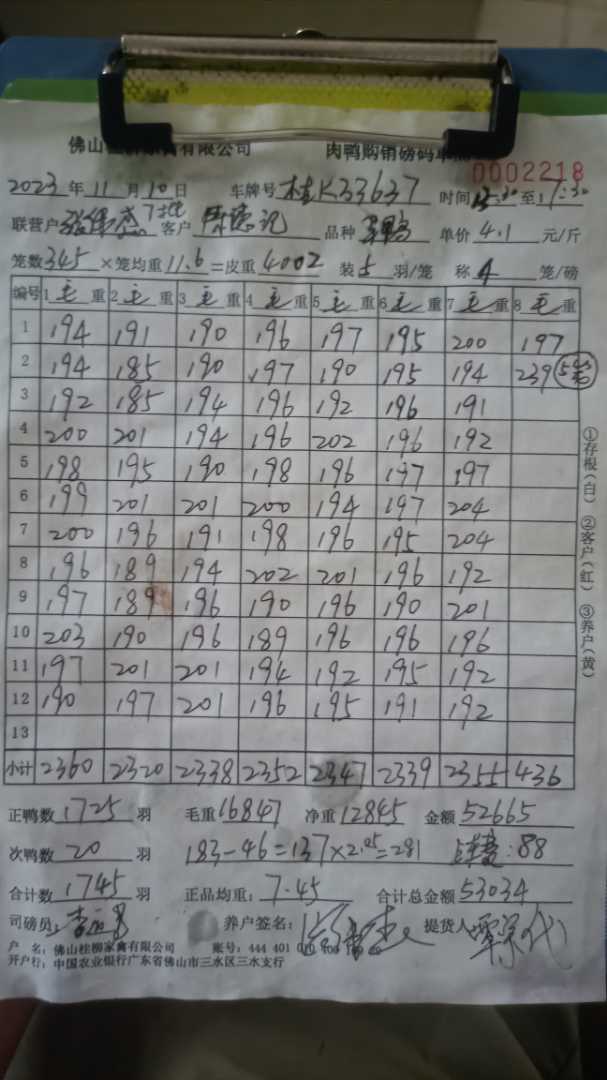 佛山桂柳家禽有限公司 肉鸭购销磅码单
0002218
2023年11月10日 车牌号 桂K33637 时间 至17:30
联营户 客户 品种 单价 4.1 元/斤
笼数 345 ×笼均重 11.6 =皮重 4002 装 5 羽/笼 称 4 笼/磅
编号 1 毛 重 2 毛 重 3 毛 重 4 毛 重 5 毛 重 6 毛 重 7 毛 重 8 毛 重
1 194 191 190 196 197 195 200 197
2 194 185 190 197 190 195 194 239 5笼
3 192 185 194 196 192 196 191
4 200 201 194 196 202 196 192
5 198 195 190 198 196 197 197
6 199 201 201 200 194 197 204
7 200 196 191 198 196 195 204
8 196 189 194 202 201 196 192
9 197 189 196 190 196 190 201
10 203 190 196 189 196 196 196
11 197 201 201 194 192 195 192
12 190 197 201 196 195 191 192
13
小计 2360 2320 2338 2352 2347 2339 2355 436
①存根(白) ②客户(红) ③养户(黄)
正鸭数 1725 羽 毛重 16847 净重 12845 金额 52665
次鸭数 20 羽 183-46=137×2.05=281 :88
合计数 1745 羽 正品均重: 7.45 合计总金额 53034
司磅员: 养户签名: 提货人
户 名: 佛山桂柳家禽有限公司 账号: 444 401 010 400
开户行: 中国农业银行广东省佛山市三水区三水支行